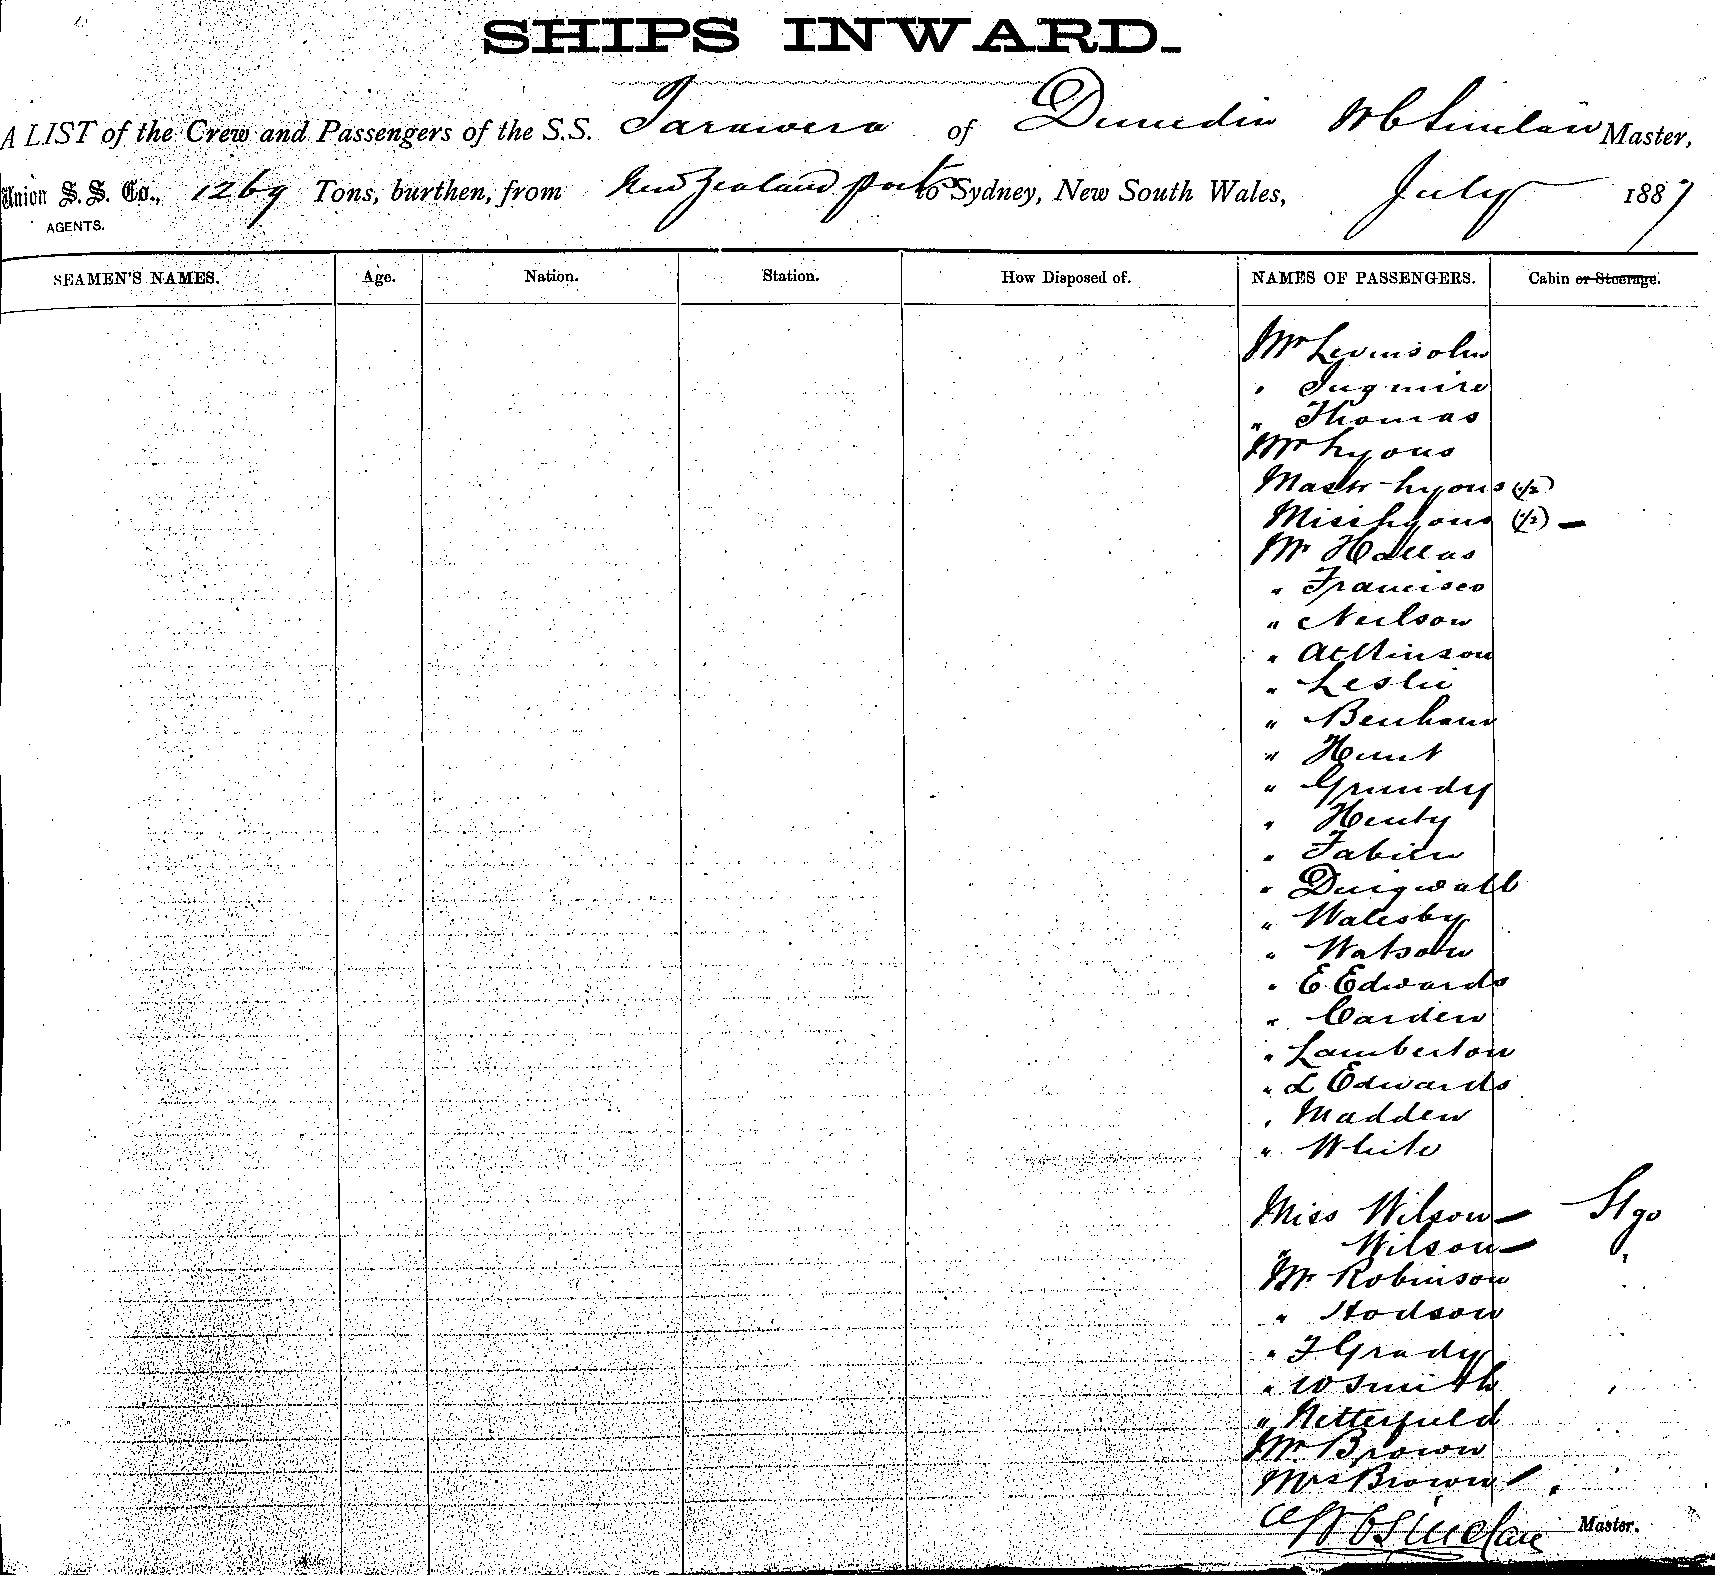 SHIPS INWARD.
A LIST of the Crew and Passengers of the S.S. Tarawera of Dunedin W C Sinclair Master,
Union S. S. Co., 1269 Tons, burthen, from New Zealand ports to Sydney, New South Wales, July 1887
AGENTS.
SEAMEN'S NAMES. Age. Nation. Station. How Disposed of. NAMES OF PASSENGERS. Cabin or Steerage.
Mr Levinsohn
" Jugmire
" Thomas
Mr Lyons
Mastr Lyons (1/2)
Miss Lyons (1/2) —
Mr Hallas
" Francisco
" Neilson
" Atkinson
" Leslie
" Benham
" Hunt
" Grundy
" Henty
" Fabien
" Dingwall
" Walesby
" Watson
" E Edwards
" Carden
" Lamberton
" L Edwards
" Madden
" White
Miss Wilson — Stge
" Wilson — "
Mr Robinson "
" Hodson
" F Grady "
" W Smith "
" Netterfield "
Mr Brown "
Mrs Brown "
W C Sinclair Master.